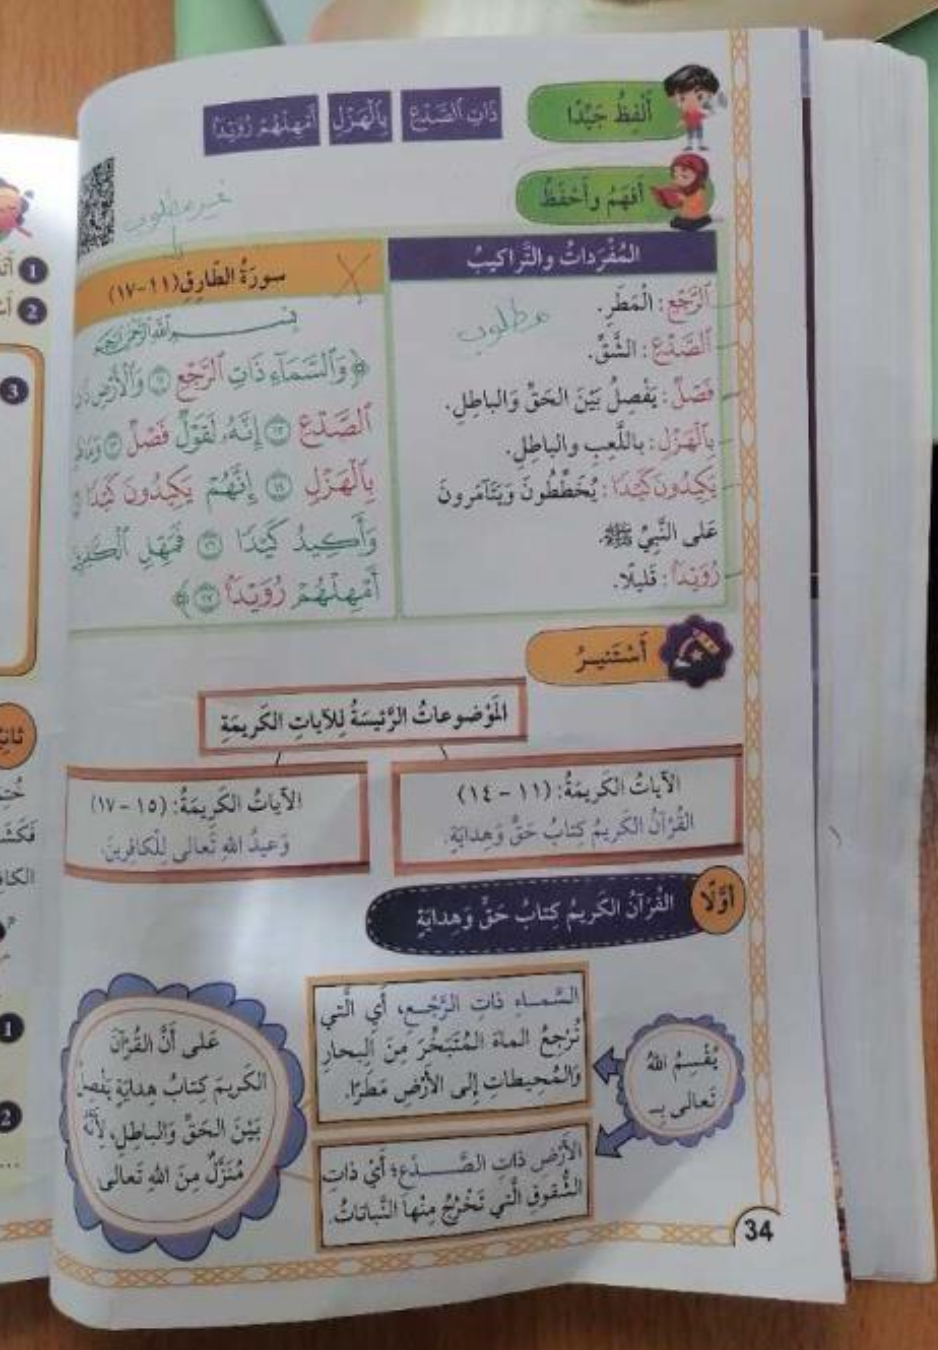 أَلْفِظُ جَيِّدًا
ذَاتِ ٱلصَّدْعِ
بِٱلْهَزْلِ
أَمْهِلْهُمْ رُوَيْدًا
أَفْهَمُ وأَحْفَظُ
غير مطلوب
المُفْرَداتُ والتَّراكيبُ
مطلوب
ٱلرَّجْعِ: الْمَطَرِ.
ٱلصَّدْعِ: الشَّقِّ.
فَصْلٌ: يَفْصِلُ بَيْنَ الحَقِّ وَالباطِلِ.
بِٱلْهَزْلِ: باللَّعِبِ والباطِلِ.
يَكِيدُونَ كَيْدًا: يُخَطِّطُونَ وَيَتَآمَرونَ
عَلى النَّبِيِّ ﷺ.
رُوَيْدًا: قَليلًا.
سورَةُ الطّارِقِ (١١-١٧)
بِسْمِ ٱللَّهِ ٱلرَّحْمَٰنِ ٱلرَّحِيمِ
﴿وَٱلسَّمَآءِ ذَاتِ ٱلرَّجْعِ ١١ وَٱلْأَرْضِ
ٱلصَّدْعِ ١٢ إِنَّهُۥ لَقَوْلٌ فَصْلٌ ١٣
بِٱلْهَزْلِ ١٤ إِنَّهُمْ يَكِيدُونَ كَيْدًا
وَأَكِيدُ كَيْدًا ١٦ فَمَهِّلِ
أَمْهِلْهُمْ رُوَيْدًۢا ١٧﴾
أَسْتَنيرُ
المَوْضوعاتُ الرَّئيسَةُ لِلآياتِ الكَريمَةِ
الآياتُ الكَريمَةُ: (١١ - ١٤)
القُرْآنُ الكَريمُ كِتابُ حَقٍّ وَهِدايَةٍ.
الآياتُ الكَريمَةُ: (١٥ - ١٧)
وَعيدُ اللهِ تَعالى لِلْكافِرينَ.
أَوَّلًا
القُرْآنُ الكَريمُ كِتابُ حَقٍّ وَهِدايَةٍ
يُقْسِمُ اللهُ
تَعالى بِـ
السَّماءِ ذاتِ الرَّجْعِ، أَيِ الَّتي
تُرْجِعُ الماءَ المُتَبَخِّرَ مِنَ البِحارِ
وَالمُحيطاتِ إِلى الأَرْضِ مَطَرًا.
الأَرْضِ ذاتِ الصَّدْعِ؛ أَيْ ذاتِ
الشُّقوقِ الَّتي تَخْرُجُ مِنْها النَّباتاتُ.
عَلى أَنَّ القُرْآنَ
الكَريمَ كِتابُ هِدايَةٍ يَفْصِلُ
بَيْنَ الحَقِّ وَالباطِلِ، لِأَنَّهُ
مُنَزَّلٌ مِنَ اللهِ تَعالى
34
1
2
3
1
2